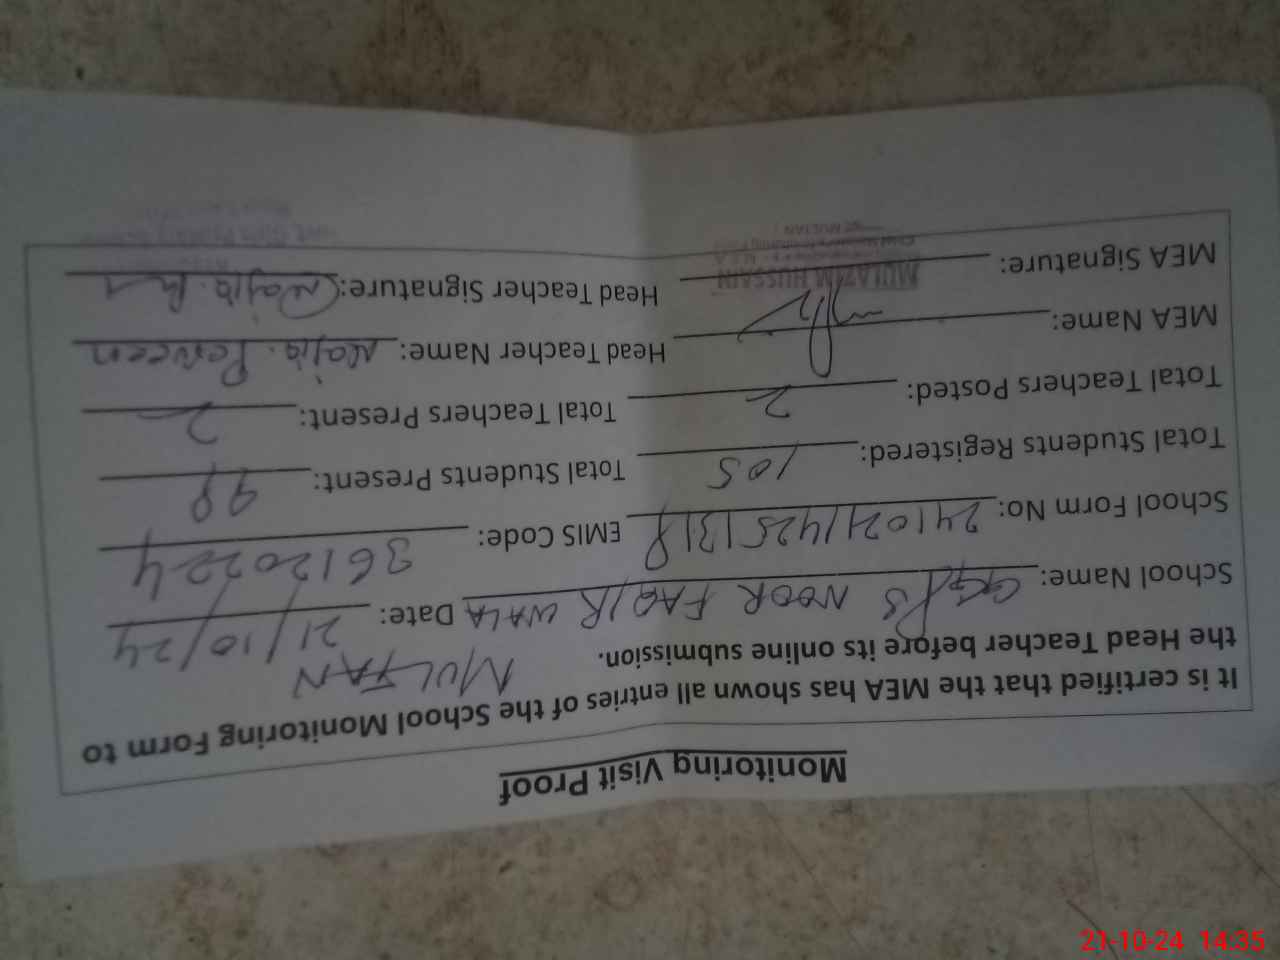 Monitoring Visit Proof
It is certified that the MEA has shown all entries of the School Monitoring Form to
the Head Teacher before its online submission.
MULTAN
School Name: GGPS NOOR FAQIR WALA Date: 21/10/24
School Form No: 24102114251318 EMIS Code: 36120224
Total Students Registered: 105 Total Students Present: 98
Total Teachers Posted: 2 Total Teachers Present: 2
MEA Name: Head Teacher Name: Najia Perveen
MEA Signature: Head Teacher Signature: Najia
MULAZIM HUSSAIN
21-10-24 14:35